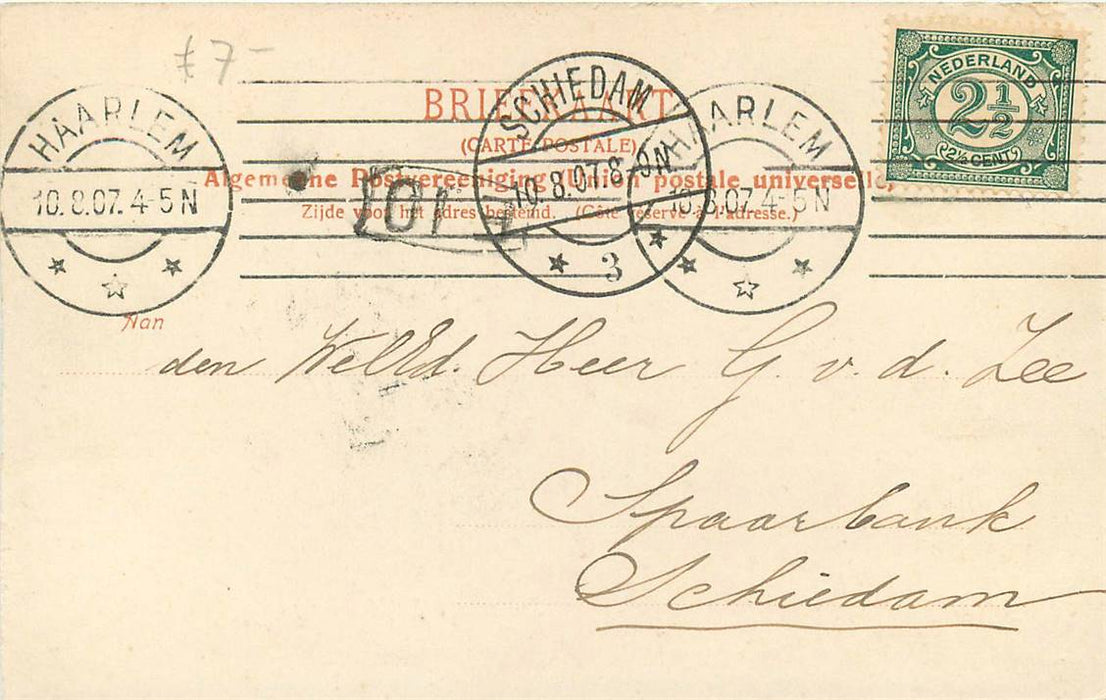 ≠ 7 -
NEDERLAND
2½
2½ CENT
HAARLEM
10.8.07. 4-5 N
SCHIEDAM
10. 8.07. 8-9N
3
HAARLEM
10.8.07. 4-5 N
BRIEFKAART
(CARTE POSTALE)
Algemeene Postvereeniging (Union postale universelle)
Zijde voor het adres bestemd. (Côté réservé à l'adresse.)
Aan
den WelEd. Heer G. v. d. Zee
Spaarbank
Schiedam